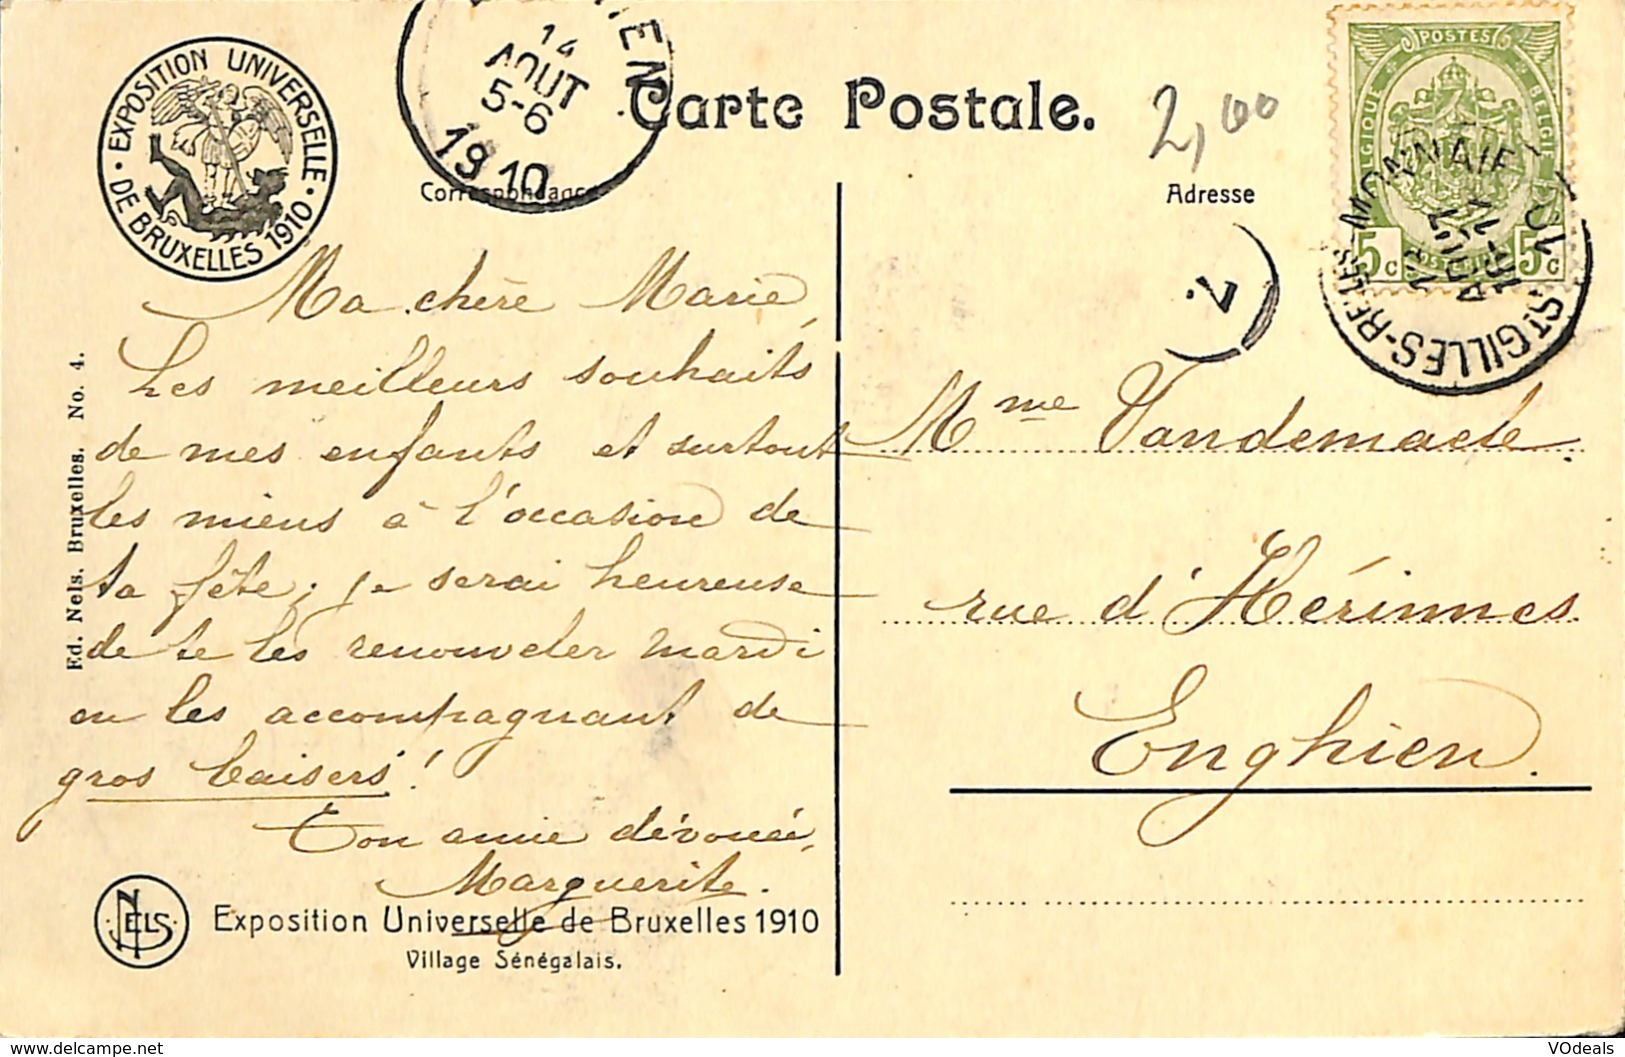 EXPOSITION UNIVERSELLE
· DE BRUXELLES 1910 ·
14
AOUT
5-6
1910
Carte Postale.
2,00
Correspondance
Adresse
POSTES
BELGIQUE
BELGIE
5c
5c
ST GILLES-BELLES-MONNAIE
AOUT
7.
Ma chère Marie,
Les meilleurs souhaits
de mes enfants et surtout
les miens à l'occasion de
ta fête; je serai heureuse
de te les renouveler mardi
en les accompagnant de
gros baisers!
Ton amie dévouée,
Marguerite.
Mme Vandemaele.
rue d'Hérinnes.
Enghien.
Ed. Nels. Bruxelles. No. 4.
NELS
Exposition Universelle de Bruxelles 1910
Village Sénégalais.
© VOdeals